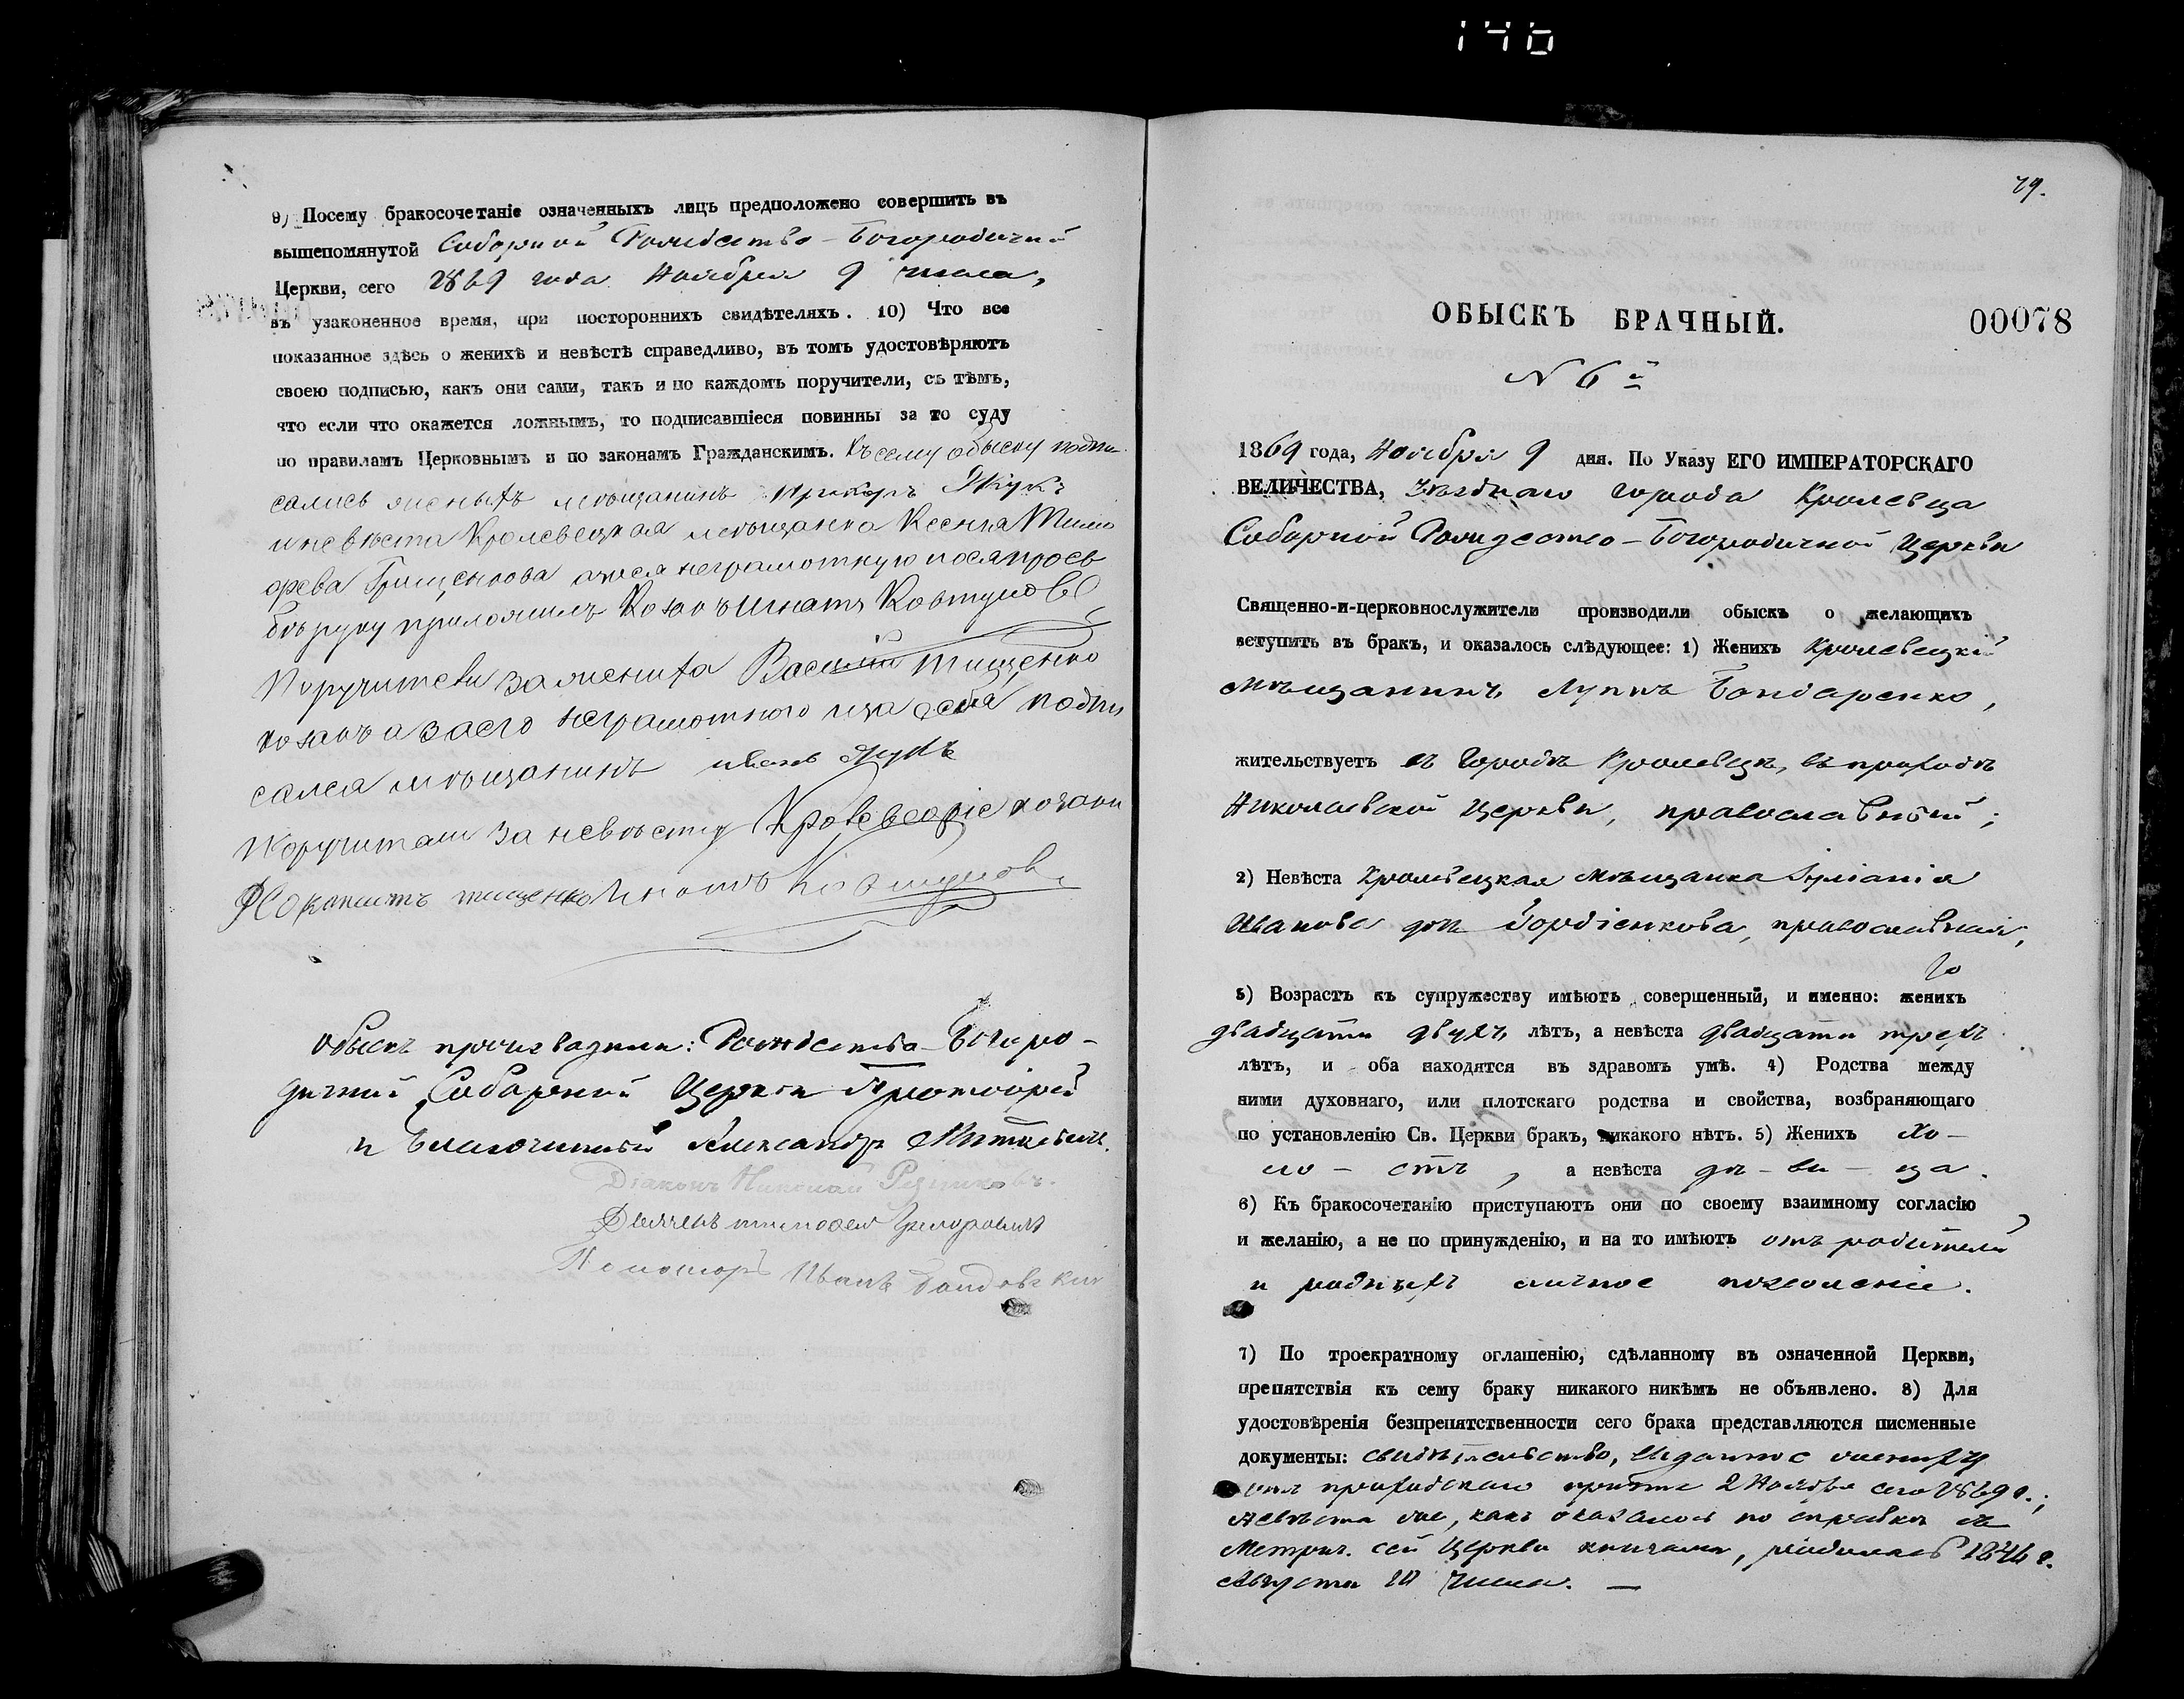 146
9) Посему бракосочетаніе означенныхъ лицъ предположено совершить въ
вышепомянутой Соборной Рождество-Богородичной
Церкви, сего 1869 года Ноября 9 числа,
въ узаконенное время, при постороннихъ свидѣтеляхъ. 10) Что все
показанное здѣсь о женихѣ и невѣстѣ справедливо, въ томъ удостовѣряютъ
своею подписью, какъ они сами, такъ и по каждомъ поручители, съ тѣмъ,
что если что окажется ложнымъ, то подписавшіеся повинны за то суду
по правиламъ Церковнымъ и по законамъ Гражданскимъ. Къ сему обыску подпи
сались женихъ мѣщанинъ Жукъ
и невѣста Кролевецкая мѣщанка Ксенія Тимо
фева Грищенкова а
бѣ руку приложилъ Козакъ Игнатъ Ковтуновъ
Поручители за жениха Василій Тищенко
козакъ а за его неграмотного и за себя подпи
салса мѣщанинъ Иванъ Жукъ
Поручители за невѣсту козаки
тищенко Игнатъ Ковтунов
Обыскъ производили: Рождества-Богоро-
дичной Соборной Церкви Протоіерей
и Благочинный Александръ
Діаконъ Николай
Дьячекъ тимофей Григоровичъ
Пономоръ Иванъ
79.
ОБЫСКЪ БРАЧНЫЙ.
00078
N 6й
1869 года, Ноября 9 дня. По Указу ЕГО ИМПЕРАТОРСКАГО
ВЕЛИЧЕСТВА, уѣзднаго города Кролевца
Соборной Рождество-Богородичной Церкви
Священно-и-церковнослужители производили обыскъ о желающихъ
вступить въ бракъ, и оказалось слѣдующее: 1) Женихъ Кролевецкій
мѣщанинъ Лупъ Бондаренко,
жительствуетъ въ городѣ Кролевцѣ, въ приходѣ
Николаевской Церкви, православный;
2) Невѣста Кролевецкая мѣщанка Іуліанія
Иванова дочь Гордіенкова, православная;
3) Возрастъ къ супружеству имѣютъ совершенный, и именно: женихъ
двадцати двухъ лѣтъ, а невѣста двадцати трехъ
лѣтъ, и оба находятся въ здравомъ умѣ. 4) Родства между
ними духовнаго, или плотскаго родства и свойства, возбраняющаго
по установленію Св. Церкви бракъ, никакого нѣтъ. 5) Женихъ хо-
ло-стъ, а невѣста дѣ-ви-ца.
6) Къ бракосочетанію приступаютъ они по своему взаимному согласію
и желанію, а не по принужденію, и на то имѣютъ отъ родителей
и родныхъ личное позволеніе.
7) По троекратному оглашенію, сдѣланному въ означенной Церкви,
препятствія къ сему браку никакого никѣмъ не объявлено. 8) Для
удостовѣренія безпрепятственности сего брака представляются писменные
документы: свидѣтельство, выданное жениху
отъ приходскаго причта 2 Ноября сего 1869 г.;
невѣста же, какъ оказалось по справкѣ въ
Метрич. сей Церкви книгами, родилась 1846 г.
Августа 10 числа. —